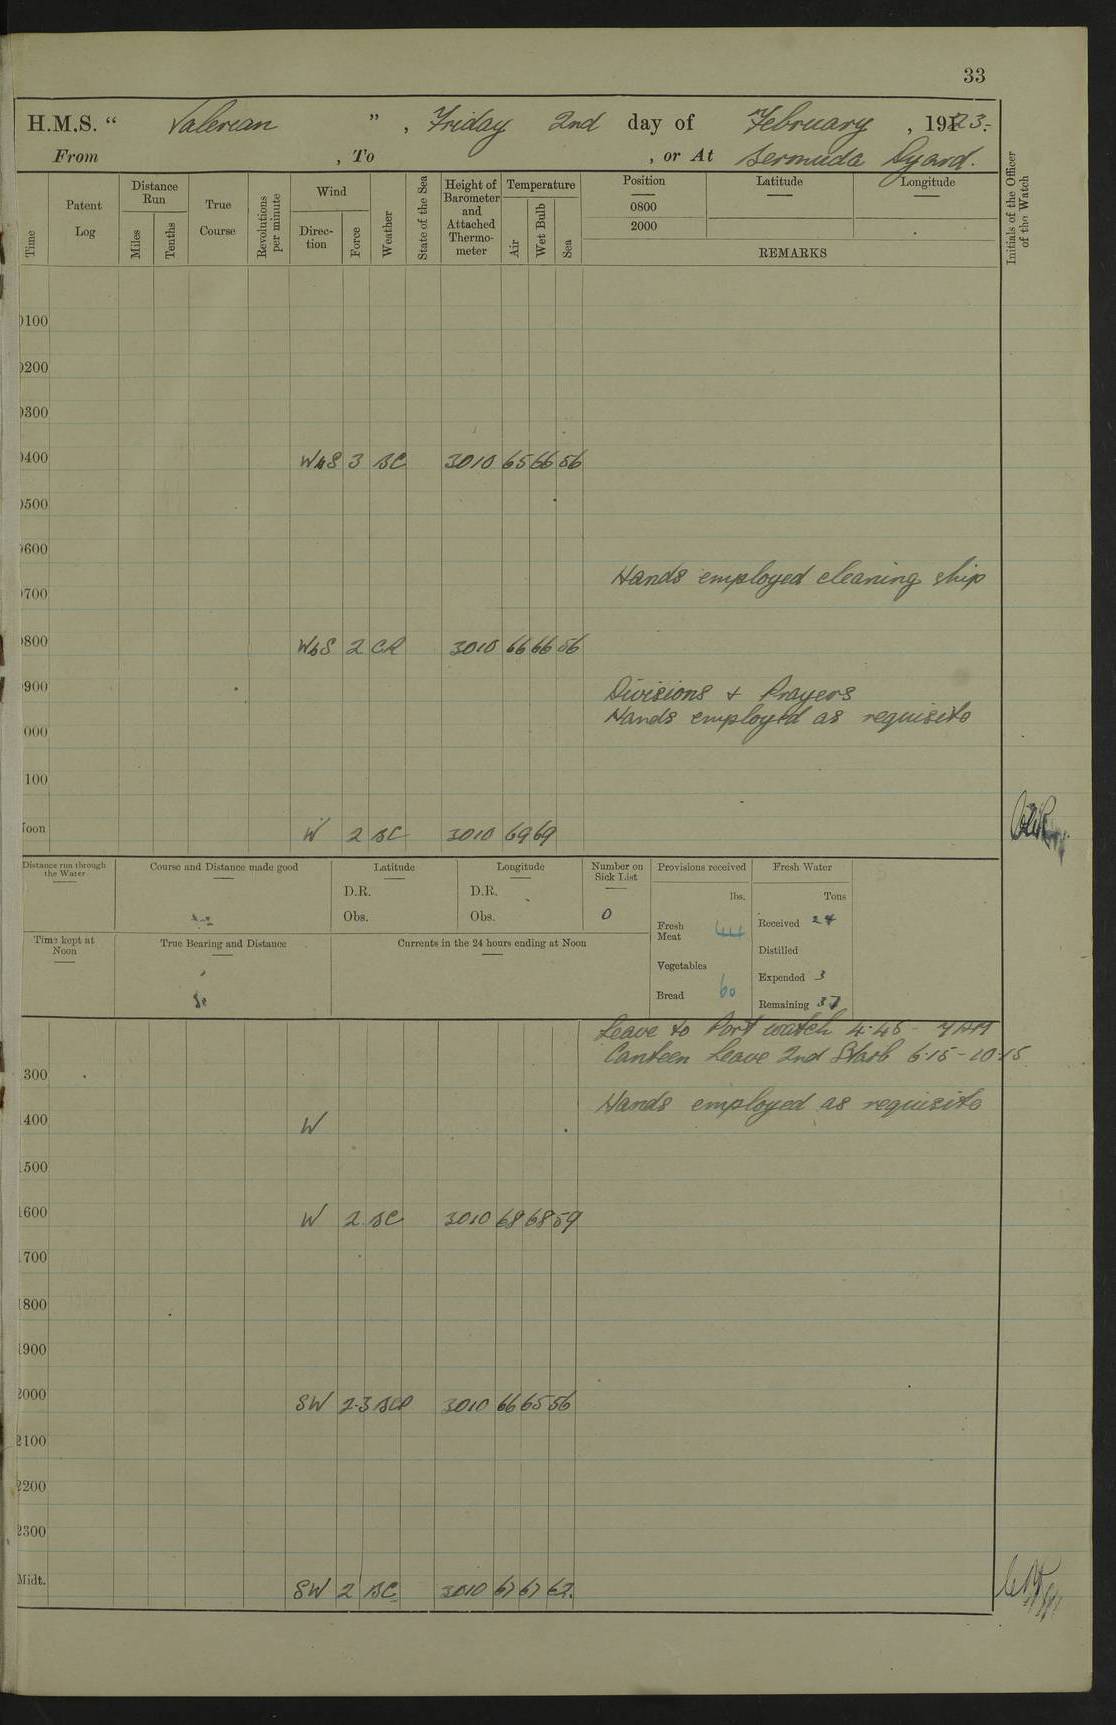 33
H.M.S. “ Valerian ” , Friday 2nd day of February , 1923.
From , To , or At Bermuda Dyard.
Time Patent Log Distance Run Miles Tenths True Course Revolutions per minute Wind Direction Force Weather State of the Sea Height of Barometer and Attached Thermometer Temperature Air Wet Bulb Sea Position 0800 2000 Latitude Longitude REMARKS Initials of the Officer of the Watch
0100
0200
0300
0400 WbS 3 BC 3010 65 66 56
0500
0600
Hands employed cleaning ship
0700
0800 WbS 2 CR 3010 66 66 56
0900 Divisions + Prayers
Hands employed as requisite
000
100
Noon W 2 BC 3010 69 69
Distance run through the Water Course and Distance made good Latitude Longitude Number on Sick List Provisions received Fresh Water
D.R. D.R. lbs. Tons
Obs. Obs. 0 Fresh Meat Received 24
Time kept at Noon True Bearing and Distance Currents in the 24 hours ending at Noon Distilled
Vegetables Expended 3
Bread 60 Remaining 37
Leave to Port watch 4.45 - 7 AM
Canteen Leave 2nd Starb 6.15 - 10.15
300
Hands employed as requisite
400 W
1500
1600 W 2 BC 3010 68 68 59
1700
1800
1900
2000 SW 2-3 BCP 3010 66 65 56
2100
2200
2300
Midt. SW 2 BC 3010 67 67 62.